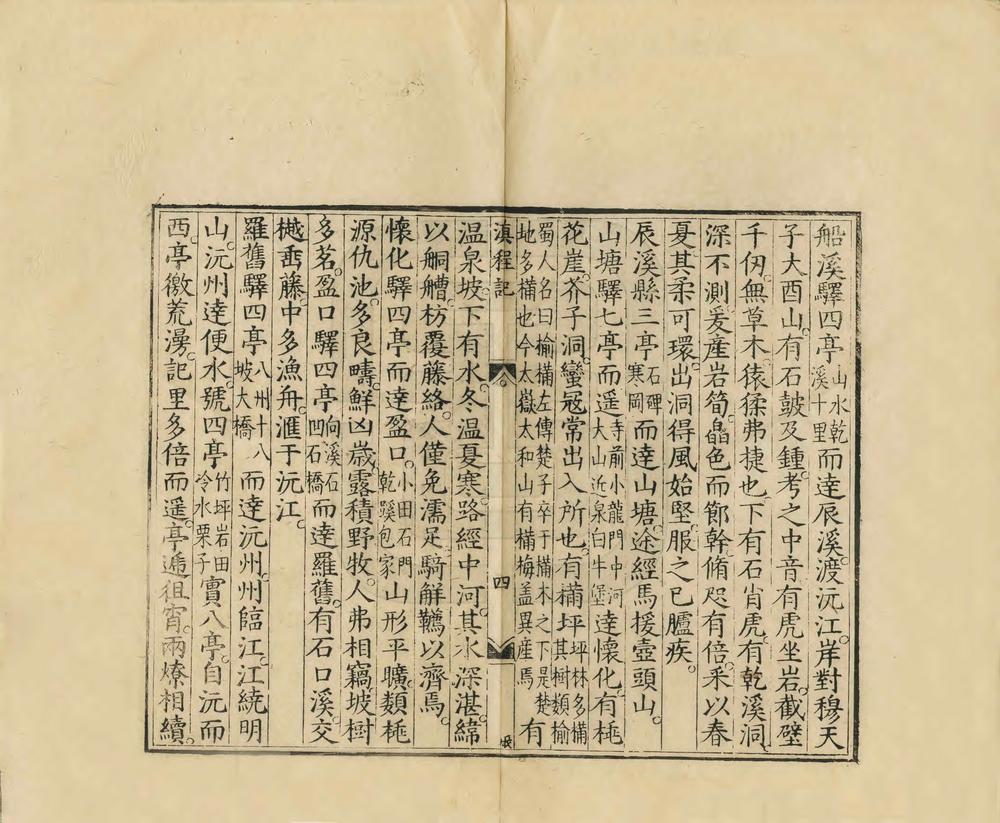 船溪驛四亭山水乾溪十里而達辰溪渡沅江岸對穆天
子大酉山有石皷及鍾考之中音有虎坐岩截壁
千仞無草木猿猱弗捷也下有石肖虎有乾溪洞
深不測爰産岩筍皛色而節幹脩咫有倍釆以春
夏其柔可環出洞得風始堅服之已臚疾
辰溪縣三亭石碑寒岡而達山塘途經馬援壺頭山
山塘驛七亭而遥寺前小龍門中河大山近泉白牛堡達懷化有桃
花崖芥子洞蠻寇常出入所也有橗坪坪林多橗其樹類榆
蜀人名曰榆橗左傳楚子卒于橗木之下是楚地多橗也今太嶽太和山有橗梅盖異産焉有
滇程記
四
温泉坡下有水冬温夏寒路經中河其水深湛緯
以艒艚枋覆藤絡人僅免濡足騎解韉以濟焉
懷化驛四亭而達盈口小田石門乾蹊包家山形平曠類桃
源仇池多良疇鮮凶歳露積野牧人弗相竊坡樹
多茗盈口驛四亭向溪石凹石橋而達羅舊有石口溪交
樾垂藤中多漁舟滙于沅江
羅舊驛四亭八州十八坡大橋而達沅州州臨江江繞明
山沅州達便水號四亭竹坪岩田冷水栗子實八亭自沅而
西亭徼荒漫記里多倍而遥亭遞徂宵兩燎相續